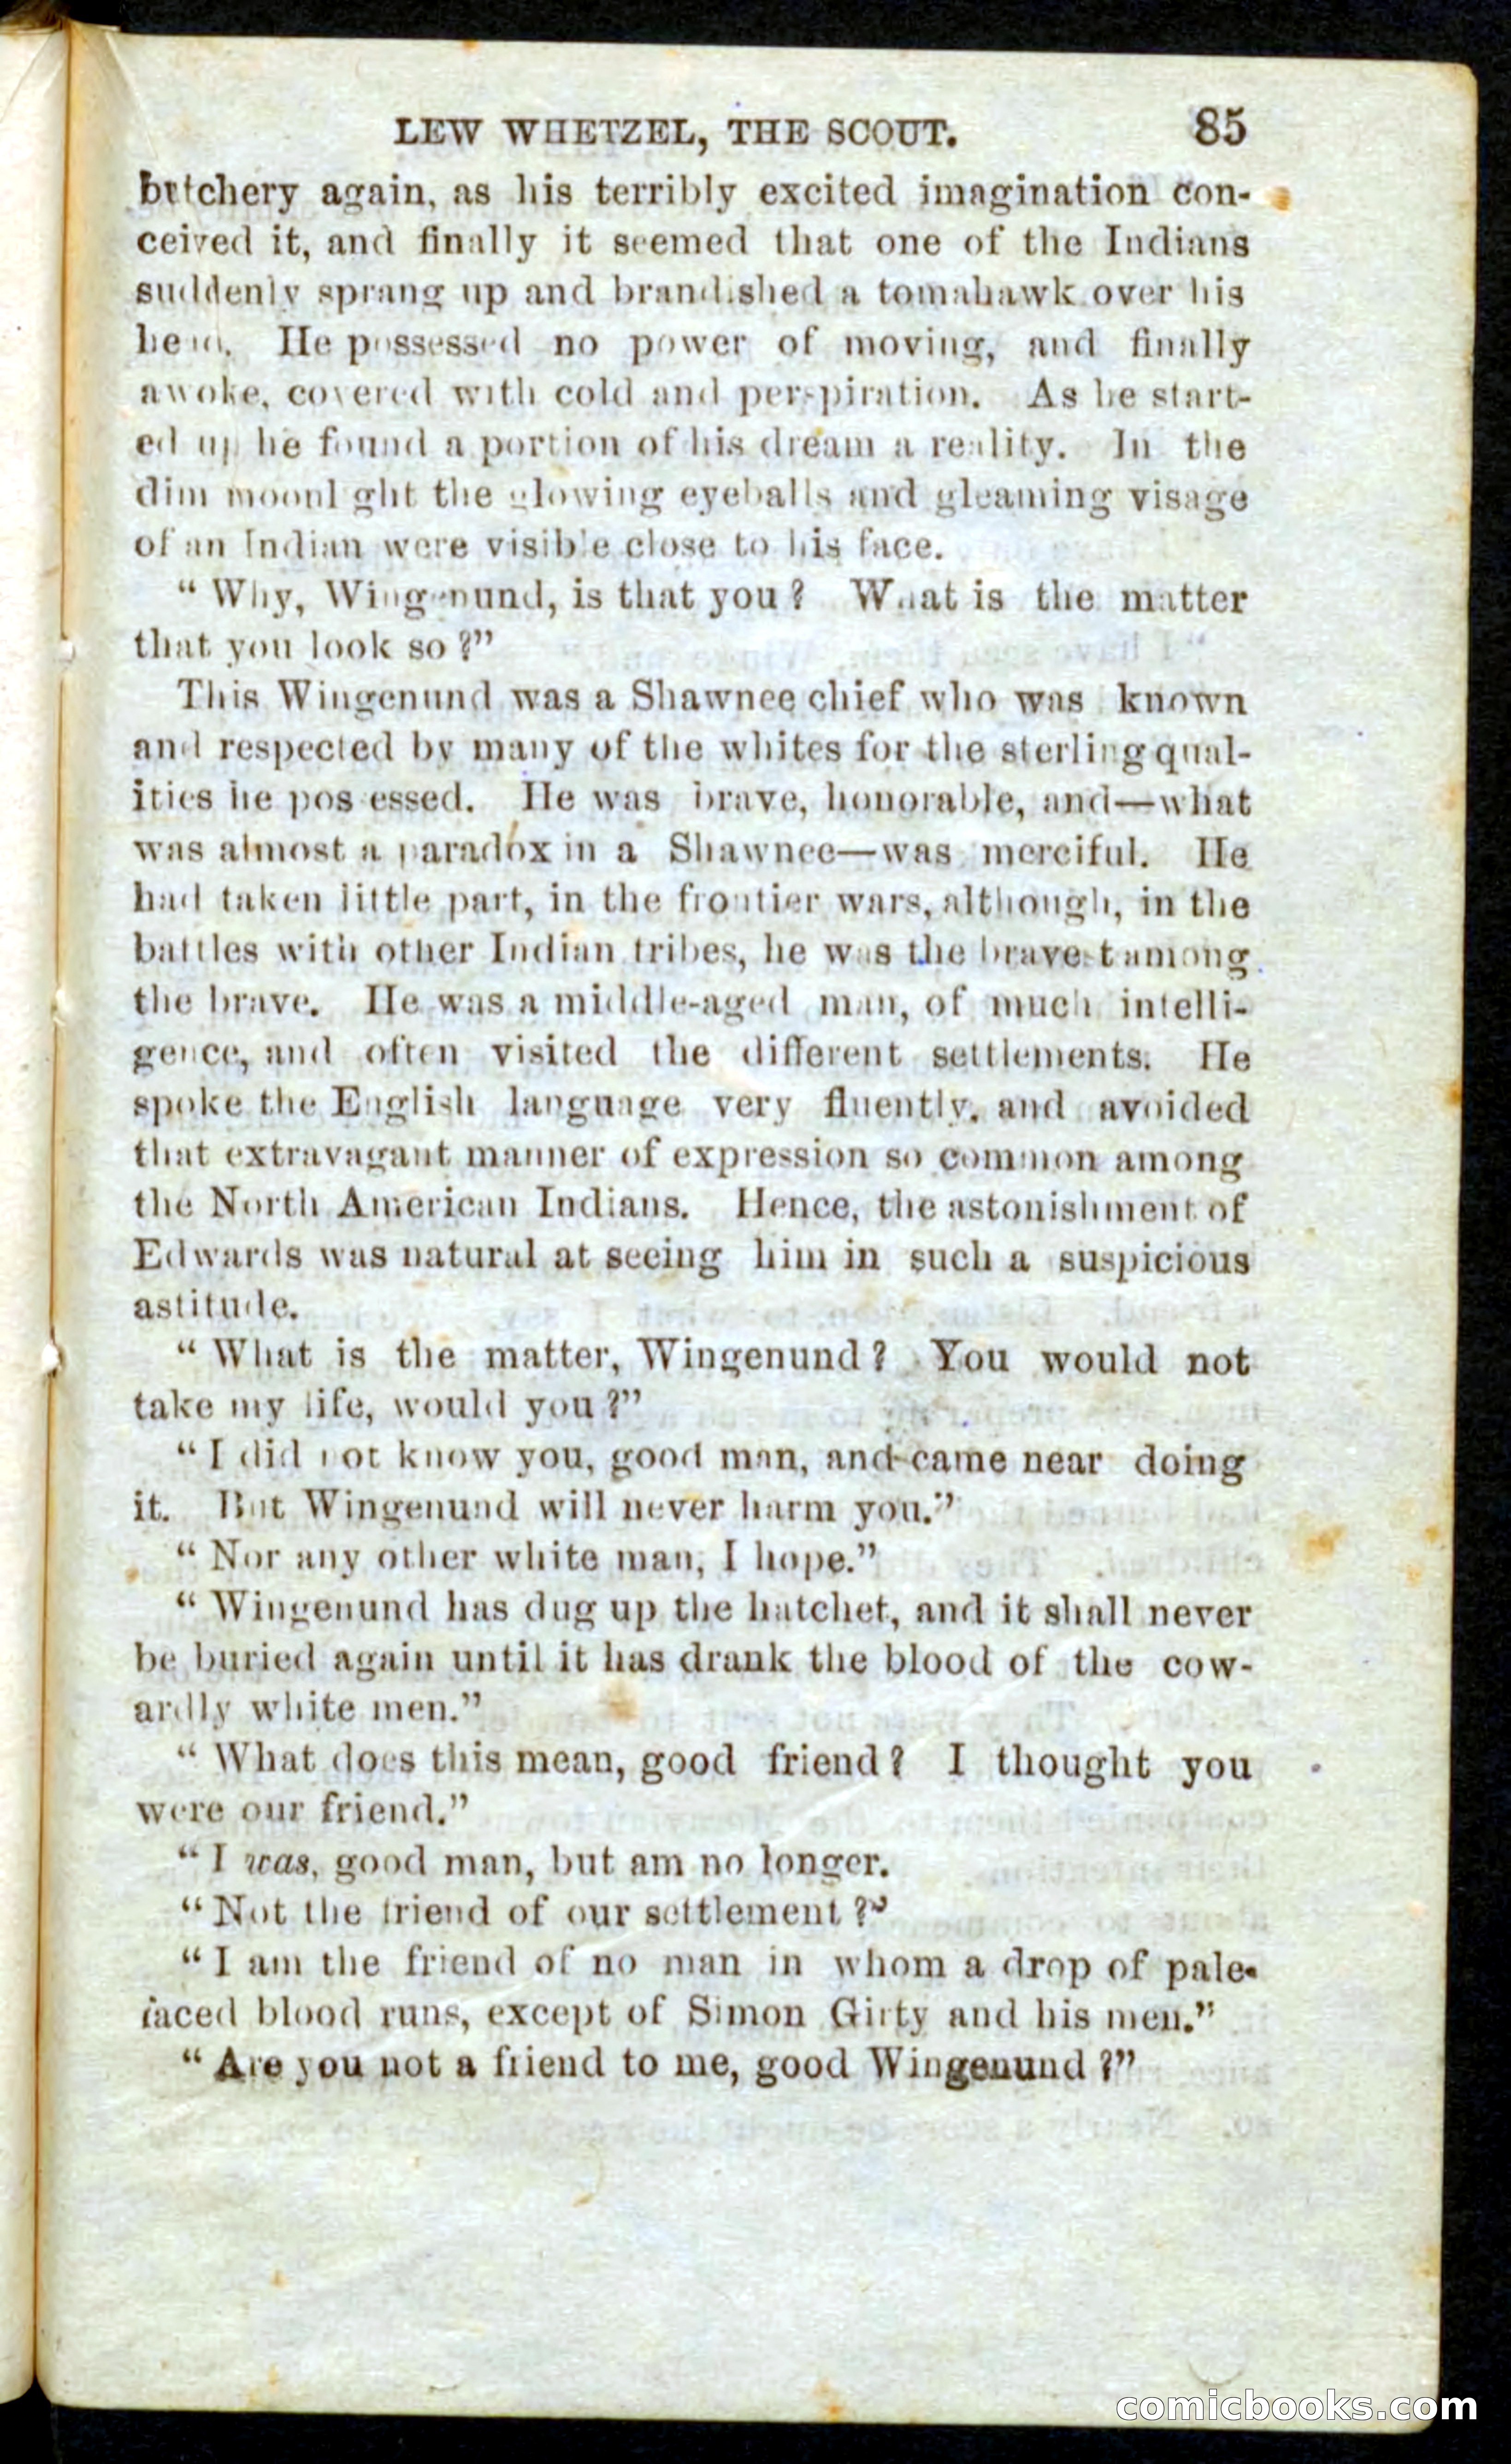 LEW WHETZEL, THE SCOUT. 85
butchery again, as his terribly excited imagination con-
ceived it, and finally it seemed that one of the Indians
suddenly sprang up and brandished a tomahawk over his
head. He possessed no power of moving, and finally
awoke, covered with cold and perspiration. As he start-
ed up he found a portion of his dream a reality. In the
dim moonlight the glowing eyeballs and gleaming visage
of an Indian were visible close to his face.
“ Why, Wingenund, is that you ? What is the matter
that you look so ?”
This Wingenund was a Shawnee chief who was known
and respected by many of the whites for the sterling qual-
ities he possessed. He was brave, honorable, and—what
was almost a paradox in a Shawnee—was merciful. He
had taken little part, in the frontier wars, although, in the
battles with other Indian tribes, he was the bravest among
the brave. He was a middle-aged man, of much intelli-
gence, and often visited the different settlements. He
spoke the English language very fluently, and avoided
that extravagant manner of expression so common among
the North American Indians. Hence, the astonishment of
Edwards was natural at seeing him in such a suspicious
astitude.
“ What is the matter, Wingenund ? You would not
take my life, would you ?”
“ I did not know you, good man, and came near doing
it. But Wingenund will never harm you.”
“ Nor any other white man, I hope.”
“ Wingenund has dug up the hatchet, and it shall never
be buried again until it has drank the blood of the cow-
ardly white men.”
“ What does this mean, good friend ? I thought you
were our friend.”
“ I was, good man, but am no longer.
“ Not the friend of our settlement ?”
“ I am the friend of no man in whom a drop of pale-
faced blood runs, except of Simon Girty and his men.”
“ Are you not a friend to me, good Wingenund ?”
comicbooks.com